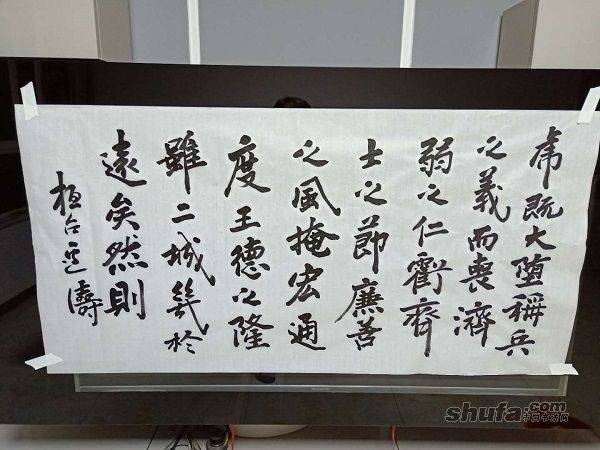 虎既大堕稱兵
之義而喪濟
弱之仁虧齊
士之節廉善
之風掩宏通
度王德之隆
雖二城幾於
遠矣然則
桓台濤
shufa.com
中国书法网